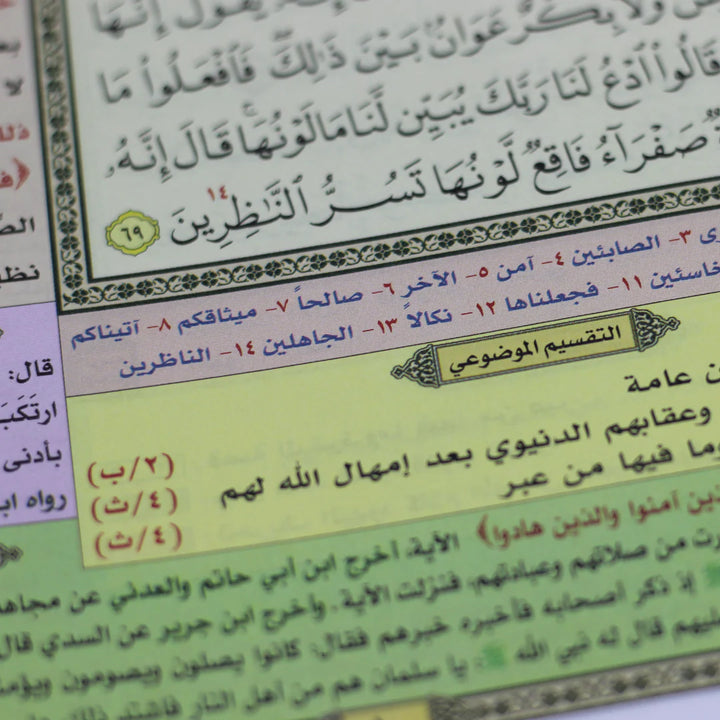 يقول إنها
ولا بكر عوان بين ذلك فافعلوا ما
قالوا ادع لنا ربك يبين لنا ما لونها قال إنه
صفراء فاقع لونها تسر الناظرين ١٤ ٦٩
٣- الصابئين ٤- آمن ٥- الآخر ٦- صالحاً ٧- ميثاقكم ٨- آتيناكم
خاسئين ١١- فجعلناها ١٢- نكالاً ١٣- الجاهلين ١٤- الناظرين
التقسيم الموضوعي
عامة
وعقابهم الدنيوي بعد إمهال الله لهم (٢/ب)
وما فيها من عبر (٤/ث)
(٤/ث)
آمنوا والذين هادوا﴾ الآية. أخرج ابن أبي حاتم والعدني عن مجاهد
من صلاتهم وعبادتهم، فنزلت الآية. وأخرج ابن جرير عن السدي قال
إذ ذكر أصحابه فأخبره خبرهم فقال: كانوا يصلون ويصومون
قال له نبي الله : يا سلمان هم من أهل النار فاشتد ذلك
الص
نظ
قال:
ارتكب
بأدنى
رواه اب